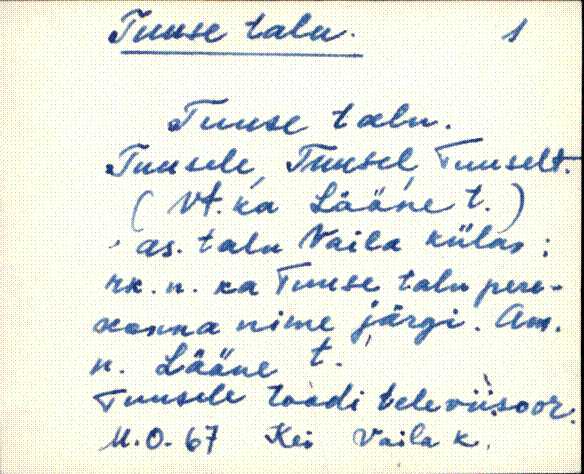 Tuuse talu. 1
Tuuse talu.
Tuusele, Tuusel, Tuuselt.
(Vt. ka Lääne t.)
as. talu Vaila külas;
rk. n. ka Tuuse talu pere-
konna nime järgi. Am.
n. Lääne t.
Tuusele toodi televiisoor.
M.O. 67 Kei Vaila k.